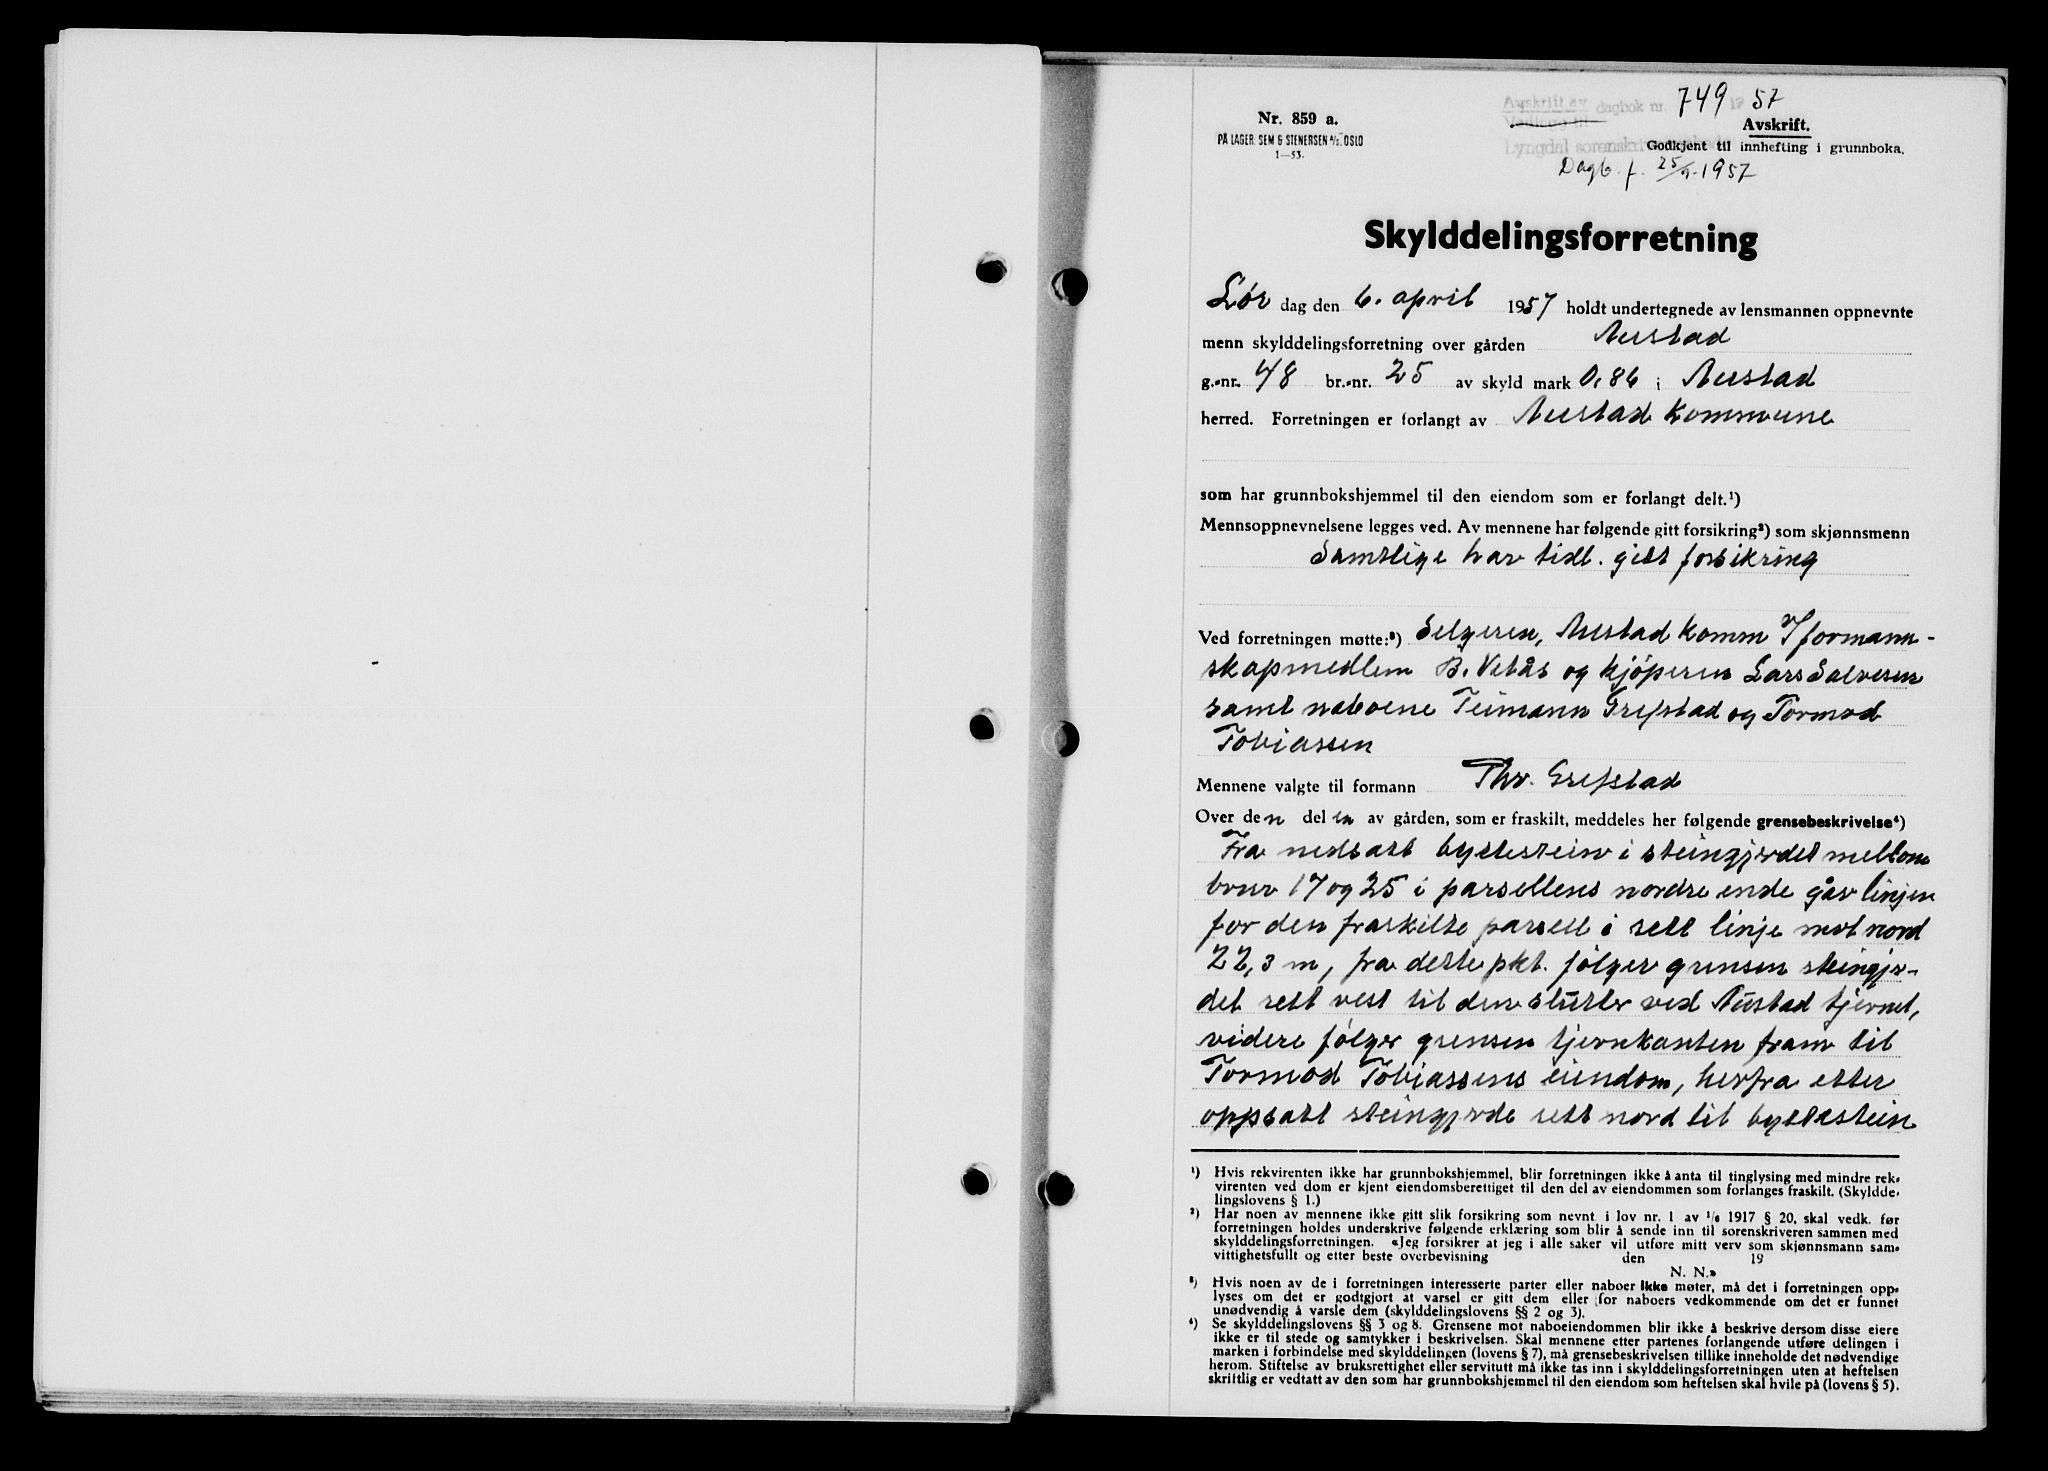 Nr. 859 a.
PÅ LAGER. SEM & STENERSEN A/S, OSLO
1—53.
Avskrift av dagbok nr. 749 1957
Vedlegg til
Avskrift.
Lyngdal sorenskri
Godkjent til innhefting i grunnboka.
Dagb. f. 25/4-1957
Skylddelingsforretning
Lør dag den 6. april 1957 holdt undertegnede av lensmannen oppnevnte
menn skylddelingsforretning over gården Austad
g.-nr. 48 br.-nr. 25 av skyld mark 0,86 i Austad
herred. Forretningen er forlangt av Austad Kommune
som har grunnbokshjemmel til den eiendom som er forlangt delt.¹)
Mennsoppnevnelsene legges ved. Av mennene har følgende gitt forsikring²) som skjønnsmenn
Samtlige har tidl. gitt forsikring
Ved forretningen møtte:³) Selgeren, Austad komm v/formann-
skapmedlem B. Vetås og kjøperen Lars Salvesen
samt naboene Teimann Grefstad og Tormod
Tobiassen
Mennene valgte til formann Thv. Grefstad
Over den delen av gården, som er fraskilt, meddeles her følgende grensebeskrivelse⁴)
Fra nedsatt byttestein i steingjerdet mellom
brnr 17 og 25 i parsellens nordre ende går linjen
for den fraskilte parsell i rett linje mot nord
22,3 m, fra dette pkt. følger grensen steingjer-
det rett vest til den slutter ved Austad tjernet,
videre følger grensen tjernkanten fram til
Tormod Tobiassens eiendom, herfra etter
oppsatt steingjerde rett nord til byttestein
¹) Hvis rekvirenten ikke har grunnbokshjemmel, blir forretningen ikke å anta til tinglysing med mindre rek-
virenten ved dom er kjent eiendomsberettiget til den del av eiendommen som forlanges fraskilt. (Skyldde-
lingslovens § 1.)
²) Har noen av mennene ikke gitt slik forsikring som nevnt i lov nr. 1 av 1/6 1917 § 20, skal vedk. før
forretningen holdes underskrive følgende erklæring som blir å sende inn til sorenskriveren sammen med
skylddelingsforretningen. «Jeg forsikrer at jeg i alle saker vil utføre mitt verv som skjønnsmann sam-
vittighetsfullt og etter beste overbevisning den 19
N. N.»
³) Hvis noen av de i forretningen interesserte parter eller naboer ikke møter, må det i forretningen opp-
lyses om det er godtgjort at varsel er gitt dem eller for naboers vedkommende om det er funnet
unødvendig å varsle dem (skylddelingslovens §§ 2 og 3).
⁴) Se skylddelingslovens §§ 3 og 8. Grensene mot naboeiendommen blir ikke å beskrive dersom disse eiere
ikke er til stede og samtykker i beskrivelsen. Skal mennene etter partenes forlangende utføre delingen i
marken i forbindelse med skylddelingen (lovens § 7), må grensebeskrivelsen tillike inneholde det nødvendige
herom. Stiftelse av bruksrettighet eller servitutt må ikke tas inn i skylddelingsforretningen uten at heftelsen
skriftlig er vedtatt av den som har grunnbokshjemmel til den eiendom som heftelsen skal hvile på (lovens § 5).